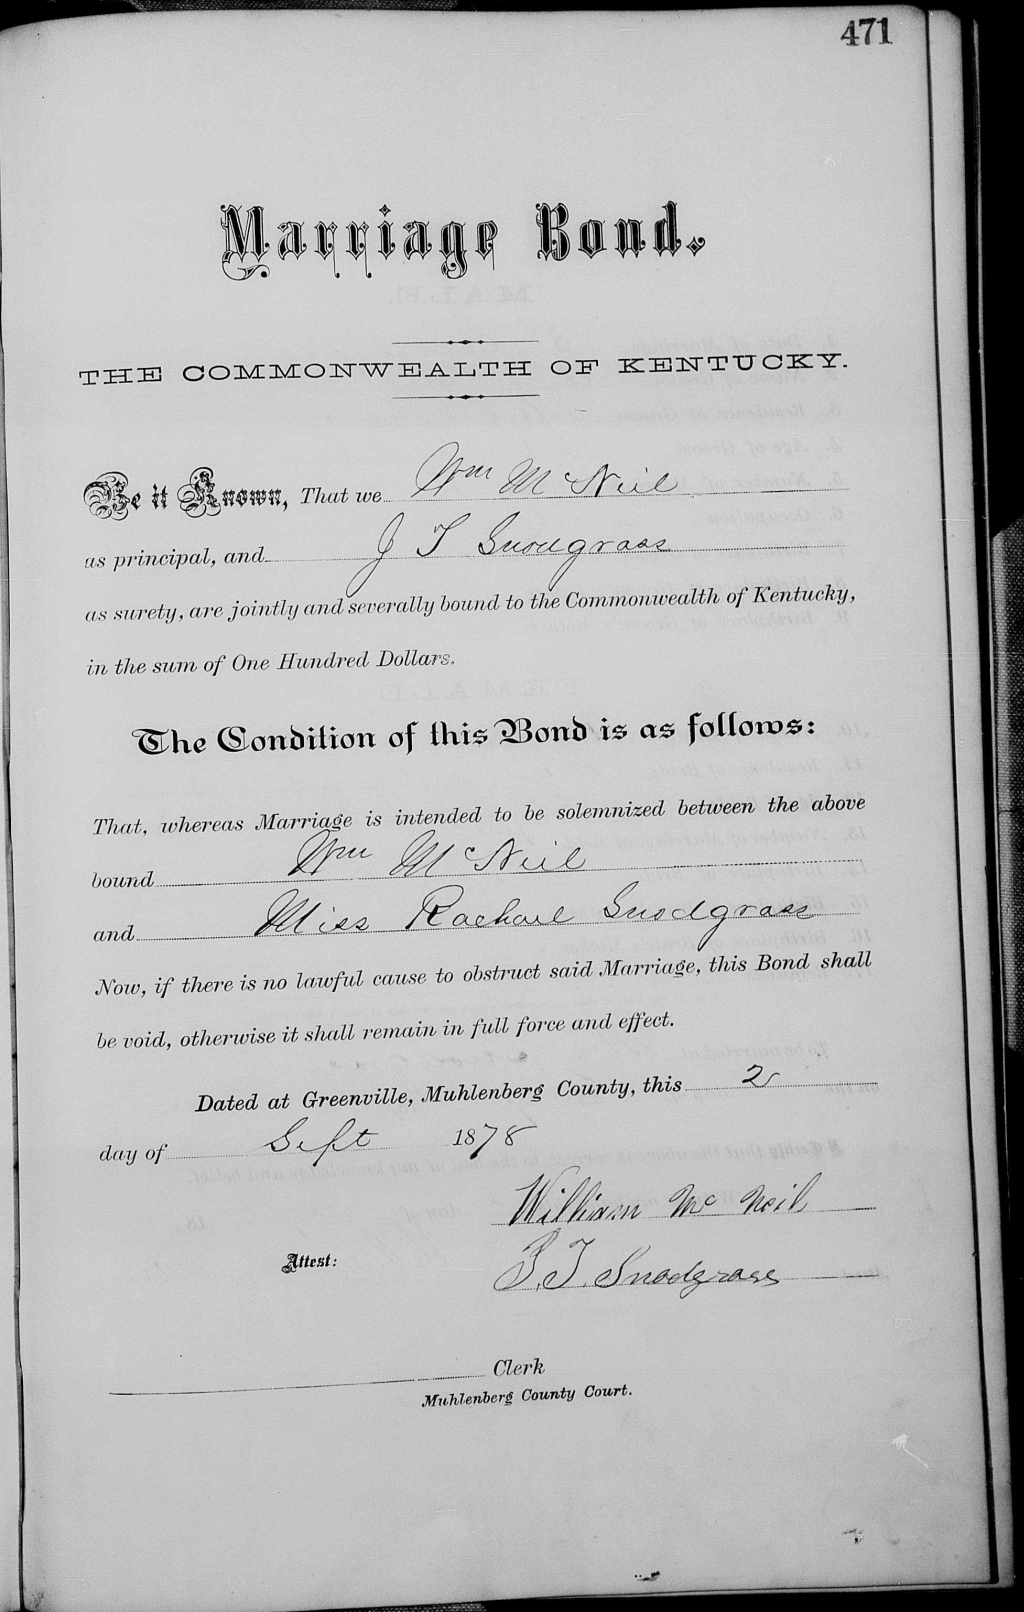 471
Marriage Bond.
THE COMMONWEALTH OF KENTUCKY.
Be it Known, That we Wm McNeil
as principal, and J T Snodgrass
as surety, are jointly and severally bound to the Commonwealth of Kentucky,
in the sum of One Hundred Dollars.
The Condition of this Bond is as follows:
That, whereas Marriage is intended to be solemnized between the above
bound Wm McNeil
and Miss Rachael Snodgrass
Now, if there is no lawful cause to obstruct said Marriage, this Bond shall
be void, otherwise it shall remain in full force and effect.
Dated at Greenville, Muhlenberg County, this 2
day of Sept 1878
William McNeil
Attest: T. Snodgrass
Clerk
Muhlenberg County Court.